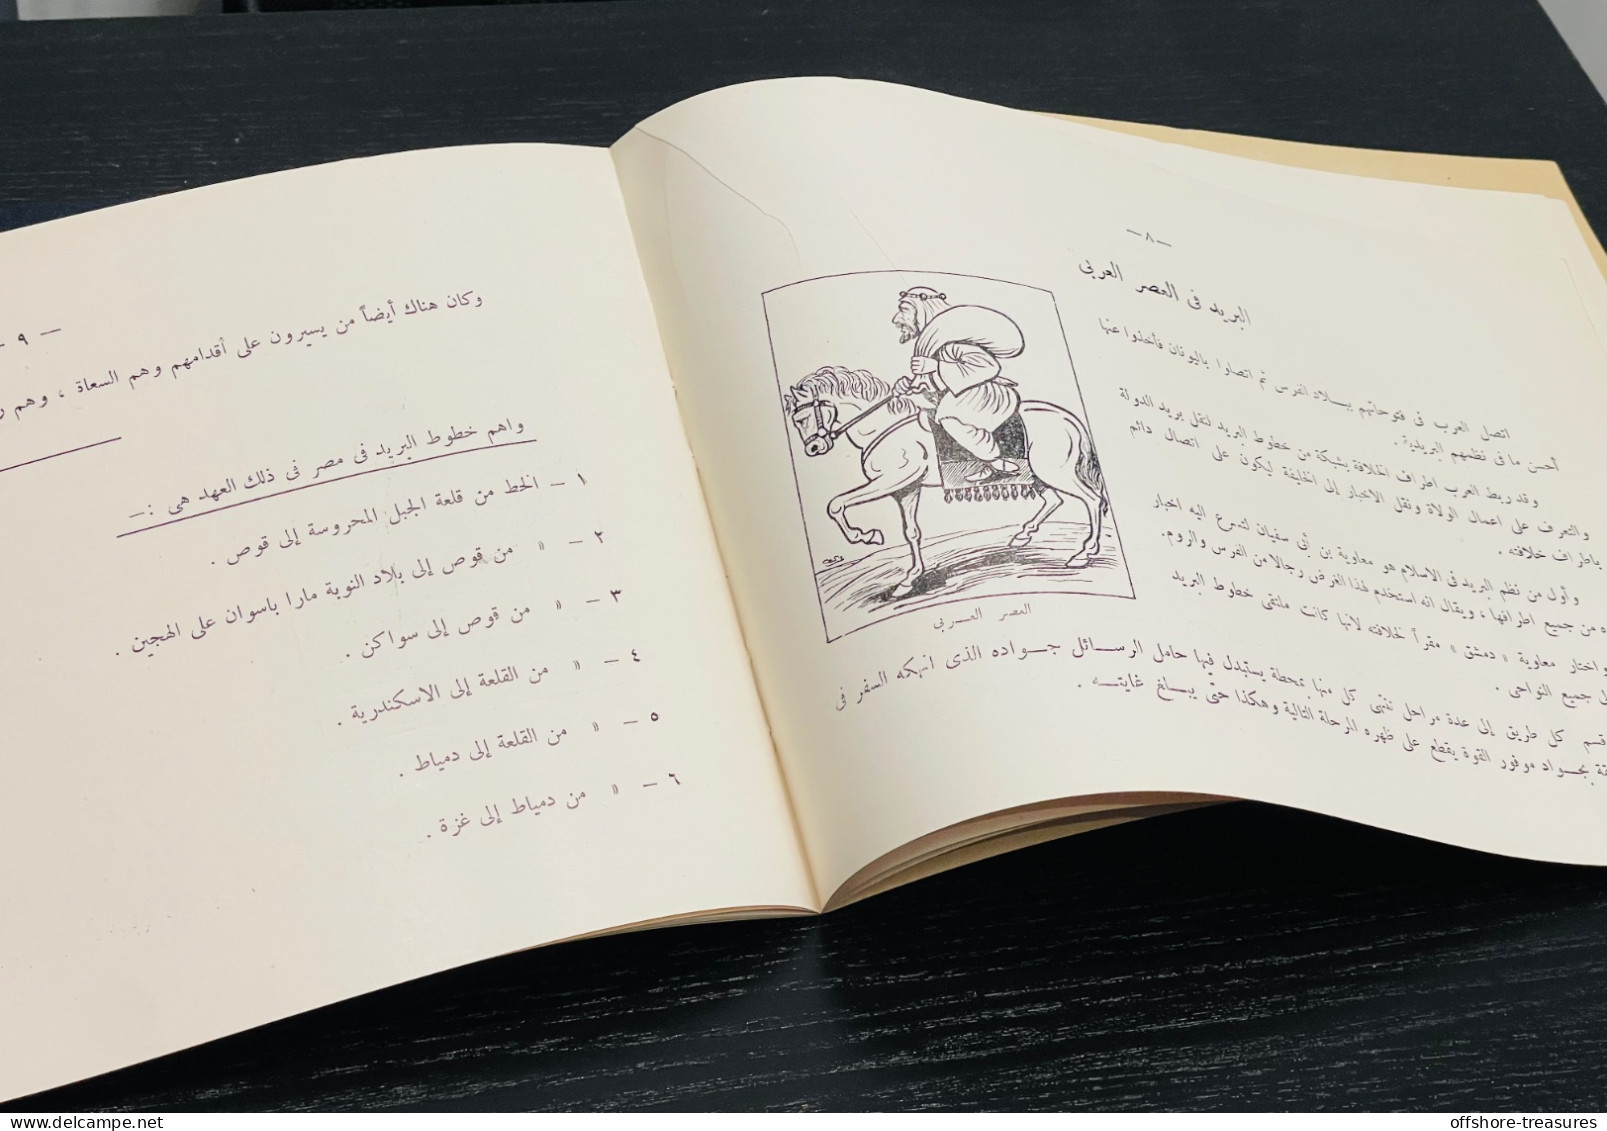 —٨—
البريد فى العصر العربى
اتصل العرب فى فتوحاتهم ببلاد الفرس ثم اتصلوا باليونان فأخذوا عنها
أحسن ما فى نظمهم البريدية .
وقد ربط العرب اطراف الخلافة بشبكة من خطوط البريد لنقل بريد الدولة
والتعرف على اعمال الولاة ونقل الاخبار إلى الخليفة ليكون على اتصال دائم
باطراف خلافته .
وأول من نظم البريد فى الاسلام هو معاوية بن أبى سفيان لتسرع اليه اخبار
من جميع اطرافها ، ويقال انه استخدم لهذا الغرض رجالا من الفرس والروم.
واختار معاوية « دمشق » مقراً لخلافته لانها كانت ملتقى خطوط البريد
جميع النواحى .
قسم كل طريق إلى عدة مراحل تنتهى كل منها بمحطة يستبدل فيها حامل الرسائل جواده الذى انهكه السفر فى
بجواد موفور القوة يقطع على ظهره المرحلة التالية وهكذا حتى يبلغ غايته .
العصر العربى
— ٩ —
وكان هناك أيضاً من يسيرون على أقدامهم وهم السعاة ، وهم
واهم خطوط البريد فى مصر فى ذلك العهد هى :—
١ — الخط من قلعة الجبل المحروسة إلى قوص .
٢ — « من قوص إلى بلاد النوبة مارا باسوان على الهجين .
٣ — « من قوص إلى سواكن .
٤ — « من القلعة إلى الاسكندرية .
٥ — « من القلعة إلى دمياط .
٦ — « من دمياط إلى غزة .
www.delcampe.net
offshore-treasures